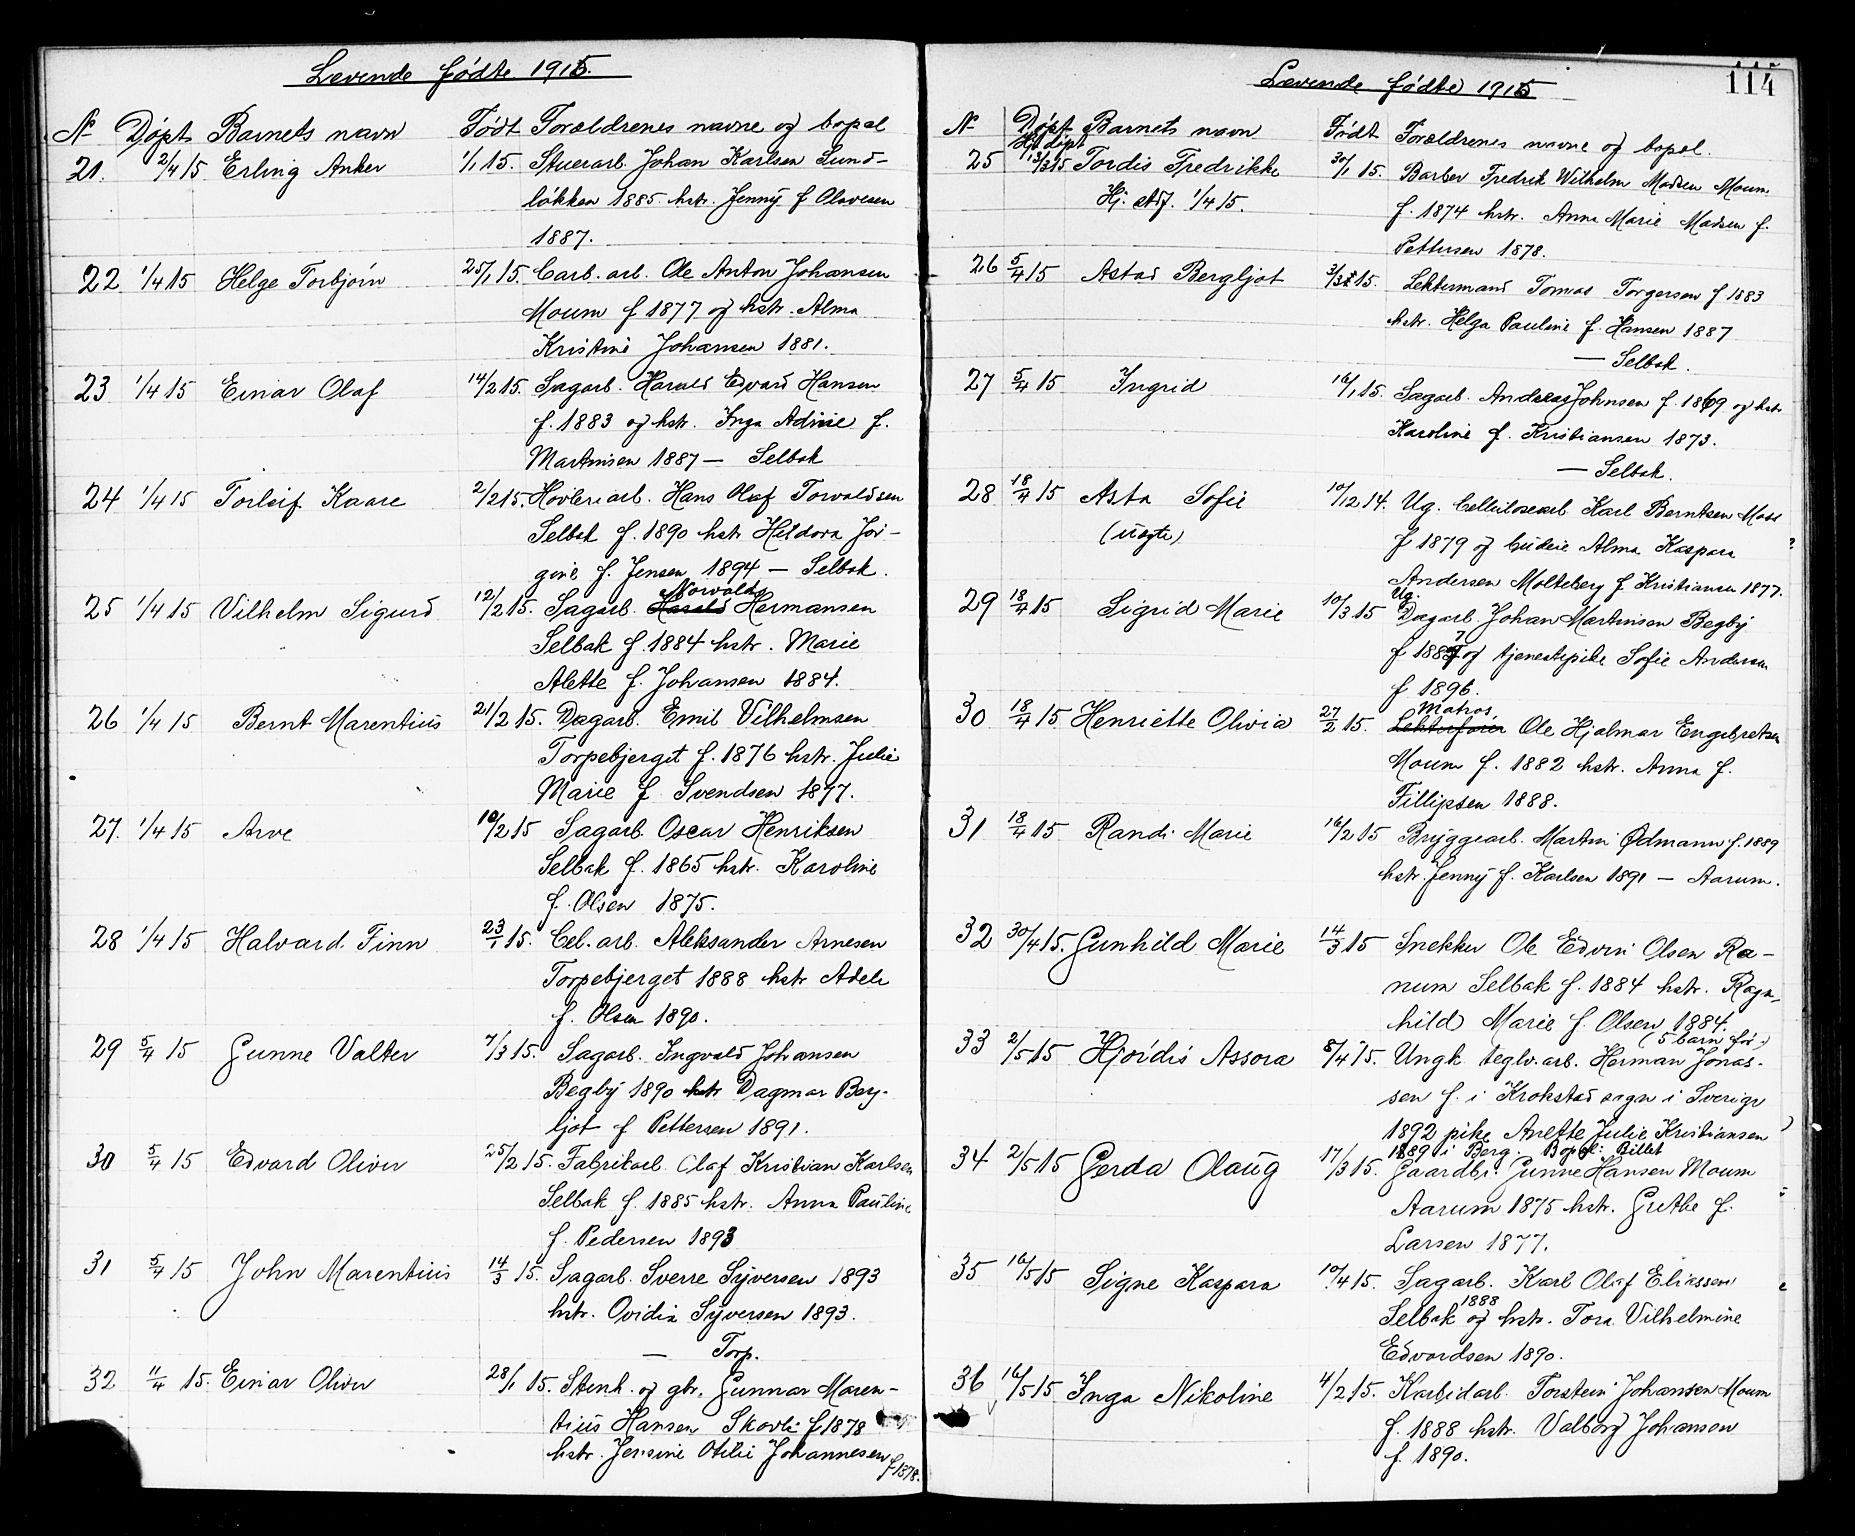 Levende fødte 1915.
No Døpt Barnets navn Født Forældrenes navne og bopæl
21. 2/4 15 Erling Anker 1/1 15. Stuerarb. Johan Karlsen Lund-
løkken 1885. hstr. Jenny f Olavesen
1887.
22 1/4 15 Helge Torbjørn 25/1 15. Carb. arb. Ole Anton Johansen
Moum f 1877 og hstr. Alma
Kristine Johansen 1881.
23 1/4 15 Einar Olaf 14/2 15. Sagarb. Harald Edvard Hansen
f. 1883 og hstr. Inga Adine f.
Martinsen 1887 — Selbak
24 1/4 15 Torleif Kaare 2/2 15. Høvleriarb. Hans Olaf Torvaldsen
Selbak f. 1890 hstr Heldora Jør-
gine f. Jensen 1894 — Selbak.
Norvald
25 1/4 15 Vilhelm Sigurd 12/2 15. Sagarb. Harald Hermansen
Selbak f. 1884 hstr. Marie
Alette f. Johansen 1884.
26 1/4 15 Bernt Marentius 21/2 15. Dagarb. Emil Vilhelmsen
Torpebjerget f. 1876 hstr. Julie
Marie f Svendsen 1877.
27. 1/4 15 Arve 10/2 15 Sagarb. Oscar Henriksen
Selbak f. 1865 hstr. Karoline
f. Olsen 1875.
28 1/4 15 Halvard Finn 23/1 15. Cel. arb. Aleksander Arnesen
Torpebjerget 1888 hstr Adele
f. Olsen 1890.
29 5/4 15 Gunne Valter 7/3 15. Sagarb. Ingvald Johansen
Begby 1890 hstr Dagmar Berg-
ljot f Pettersen 1891.
30 5/4 15 Edvard Oliver 25/2 15. Fabrikarb. Olaf Kristian Karlsen
Selbak f. 1885 hstr. Anna Pauline
f. Pedersen 1893
31 5/4 15 John Marentius 14/3 15. Sagarb. Sverre Syversen 1893
hstr. Ovidia Syversen 1893.
— Torp.
32 11/4 15. Einar Oliver 28/1 15. Stenh. og gbr. Gunnar Maren-
tius Hansen Skovli f 1878
hstr. Jensine Otilie Johannesen f 1878.
Levende fødte 1915
114
No Døpt Barnets navn Født Forældrenes navne og bopæl.
Hj. døpt
25 13/3 15 Tordis Fredrikke 30/1 15. Barber Fredrik Wilhelm Madsen Moum
Hj. stdf. 1/4 15. f. 1874 hstr. Anna Marie Madsen f.
Pettersen 1878.
26 5/4 15 Astad Bergljot 3/3 15. Lektermand Tomas Torgersen f 1883
hstr. Helga Pauline f. Hansen 1887
— Selbak.
27 5/4 15 Ingrid 16/1 15. Sagarb. Andreas Johnsen f. 1869 og hstr
Karoline f. Kristiansen 1873.
— Selbak.
28 18/4 15 Asta Sofie 10/12 14. Ug. Cellulosearb Karl Berntsen Moss
(uægte) f 1879 og Alma Kaspara
Andersen Molteberg f Kristiansen 1877.
Ug.
29 18/4 15 Sigrid Marie 10/3 15 Dagarb. Johan Martinsen Begby
f 1887 og tjenestepike Sofie Andersen
f 1896.
Matros
30 18/4 15 Henriette Olivia 27/2 15. Lekterfører Ole Hjalmar Engebretsen
Moum f. 1882 hstr. Anna f.
Fillipsen 1888.
31 18/4 15 Randi Marie 16/2 15 Bryggearb. Martin Ødmann f. 1889
hstr. Jenny f. Karlsen 1891 — Aarum.
32 30/4 15. Gunhild Marie 14/3 15 Snekker Ole Edvin Olsen Ra-
num Selbak f. 1884 hstr. Ragn-
hild Marie f. Olsen 1884.
(5 barn før)
33 2/5 15 Hjørdis Assora 8/4 15. Ungk. teglv. arb. Herman Jonas-
sen f. i Krokstad sogn i Sverige
1892 pike Anette Julie Kristiansen
1889 i Berg. Bopæl: Billet
34 2/5 15 Gerda Olaug 17/3 15. Gaardbr. Gunne Hansen Moum
Aarum 1875 hstr. Grethe f.
Larsen 1877.
35 16/5 15 Signe Kaspara 10/4 15. Sagarb. Karl Olaf Eliassen
1888
Selbak og hstr. Tora Vilhelmine
Edvardsen 1890.
36 16/5 15 Inga Nikoline 4/2 15. Karbidarb. Torstein Johansen Moum
f. 1888 hstr. Valborg Johansen
f. 1890.